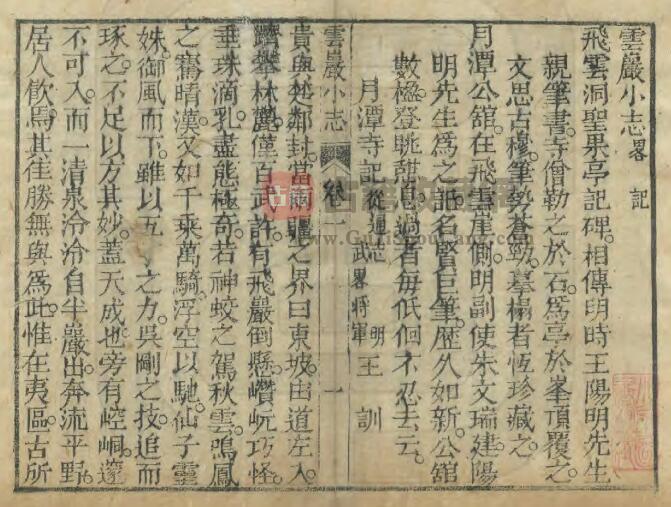 雲巖小志畧　記
飛雲洞聖果亭記碑。相傳明時王陽明先生
親筆書。寺僧勒之於石。爲亭於峯頂覆之。
文思古穆。筆勢蒼勁。摹搨者恆珍藏之。
月潭公舘。在飛雲崖側。明副使朱文瑞建。陽
明先生爲之記。名賢巨筆。歷久如新。公舘
數楹。登眺甜息。過者每低徊不忍去云。
月潭寺記　從通志　武畧將軍　明　王訓
雲巖小志　卷一　一
貴與鄰封當之界曰東坡。由道左入。
攀林麓僅百武許。有飛巖倒懸。巑岏巧怪。
垂珠滴乳。盡態極奇。若神蛟之駕秋雲。鳴鳳
之騫晴漢。又如千乘萬騎。浮空以馳。仙子靈
姝。御風而下。雖以五丁之力。吳剛之技。追而
琢之。不足以方其妙。蓋天成也。旁有崆峒。邃
不可入。而一清泉泠泠自半巖出。奔流平野。
居人飮焉。其佳勝無與爲比。惟在夷區。古所